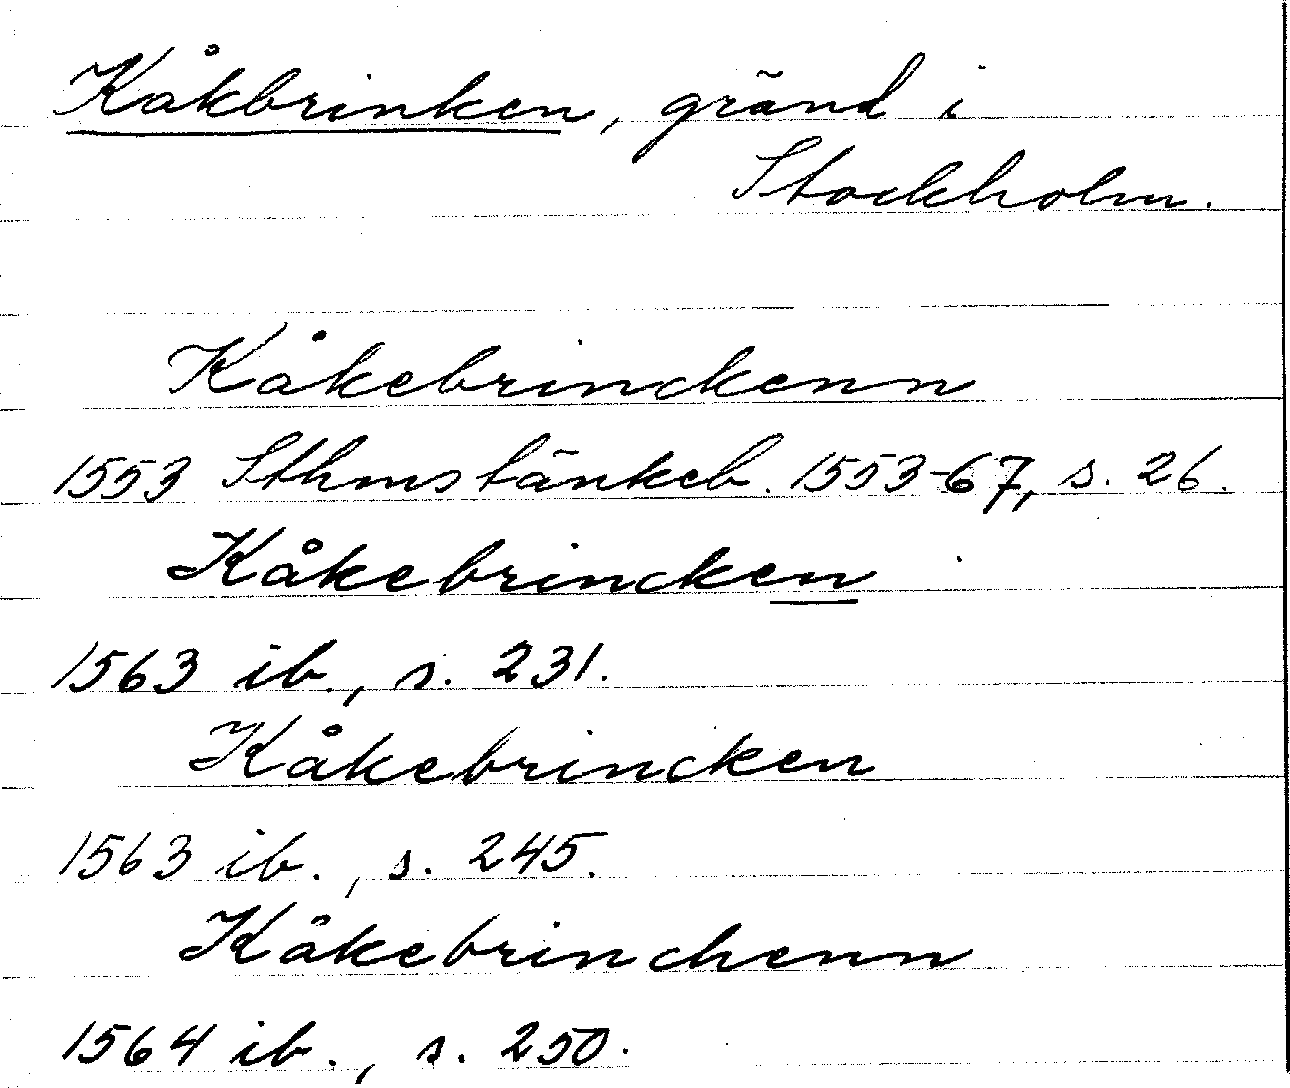 Kåkbrinken, gränd i
Stockholm.
Kåkebrinckenn
1553 Sthms tänkeb. 1553-67, s. 26.
Kåkebrincken
1563 ib., s. 231.
Kåkebrincken
1563 ib., s. 245.
Kåkebrinchenn
1564 ib., s. 250.